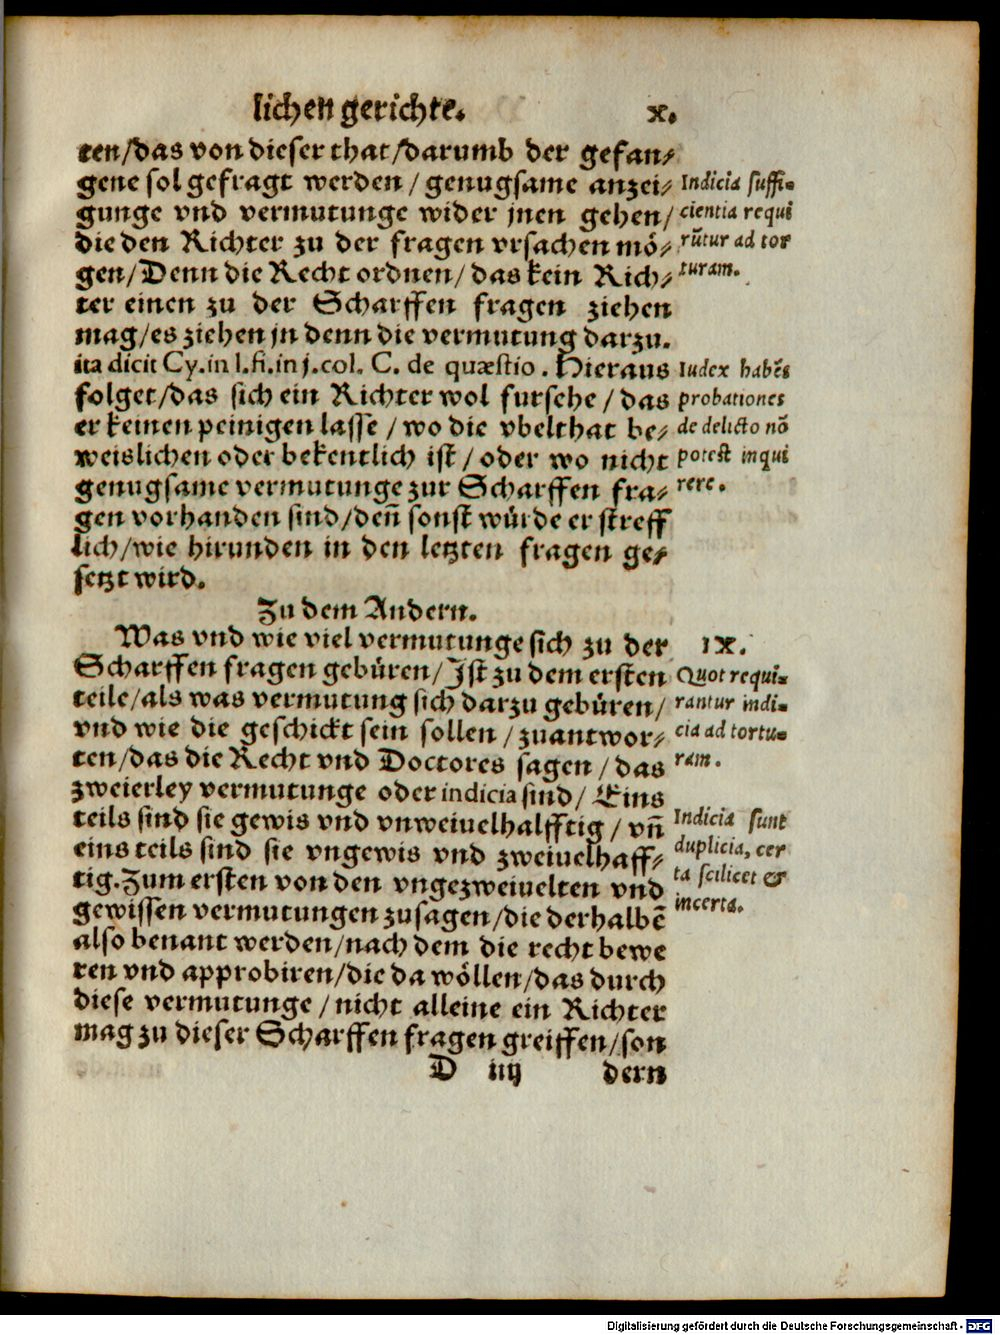 lichen gerichte. x.
ten/das von dieser that/darumb der gefan⸗
gene sol gefragt werden / genugsame anzei⸗
gunge vnd vermutunge wider jnen gehen/
die den Richter zu der fragen vrsachen mö⸗
gen/Denn die Recht ordnen/das kein Rich⸗
ter einen zu der Scharffen fragen ziehen
mag/es ziehen jn denn die vermutung darzu.
ita dicit Cy.in l.fi.in j.col. C. de quæstio. Hieraus
folget/das sich ein Richter wol fursehe / das
er keinen peinigen lasse / wo die vbelthat be⸗
weislichen oder bekentlich ist / oder wo nicht
genugsame vermutunge zur Scharffen fra⸗
gen vorhanden sind/deñ sonst würde er streff
lich/wie hirunden in den letzten fragen ge⸗
setzt wird.
Indicia suffi⸗
cientia requi
rũtur ad tor
turam.
Iudex habẽs
probationes
de delicto nõ
potest inqui
rere.
Zu dem Andern.
Was vnd wie viel vermutunge sich zu der
Scharffen fragen gebüren/Ist zu dem ersten
teile/als was vermutung sich darzu gebüren/
vnd wie die geschickt sein sollen / zuantwor⸗
ten/das die Recht vnd Doctores sagen / das
zweierley vermutunge oder indicia sind/ Eins
teils sind sie gewis vnd vnweiuelhafftig / vñ
eins teils sind sie vngewis vnd zweiuelhaff⸗
tig.Zum ersten von den vngezweiuelten vnd
gewissen vermutungen zusagen/die derhalbẽ
also benant werden/nach dem die recht bewe
ren vnd approbiren/die da wöllen/das durch
diese vermutunge / nicht alleine ein Richter
mag zu dieser Scharffen fragen greiffen/son
IX.
Quot requi⸗
rantur indi⸗
cia ad tortu⸗
ram.
Indicia sunt
duplicia, cer
ta scilicet &
incerta.
D iiij dern
Digitalisierung gefördert durch die Deutsche Forschungsgemeinschaft - DFG